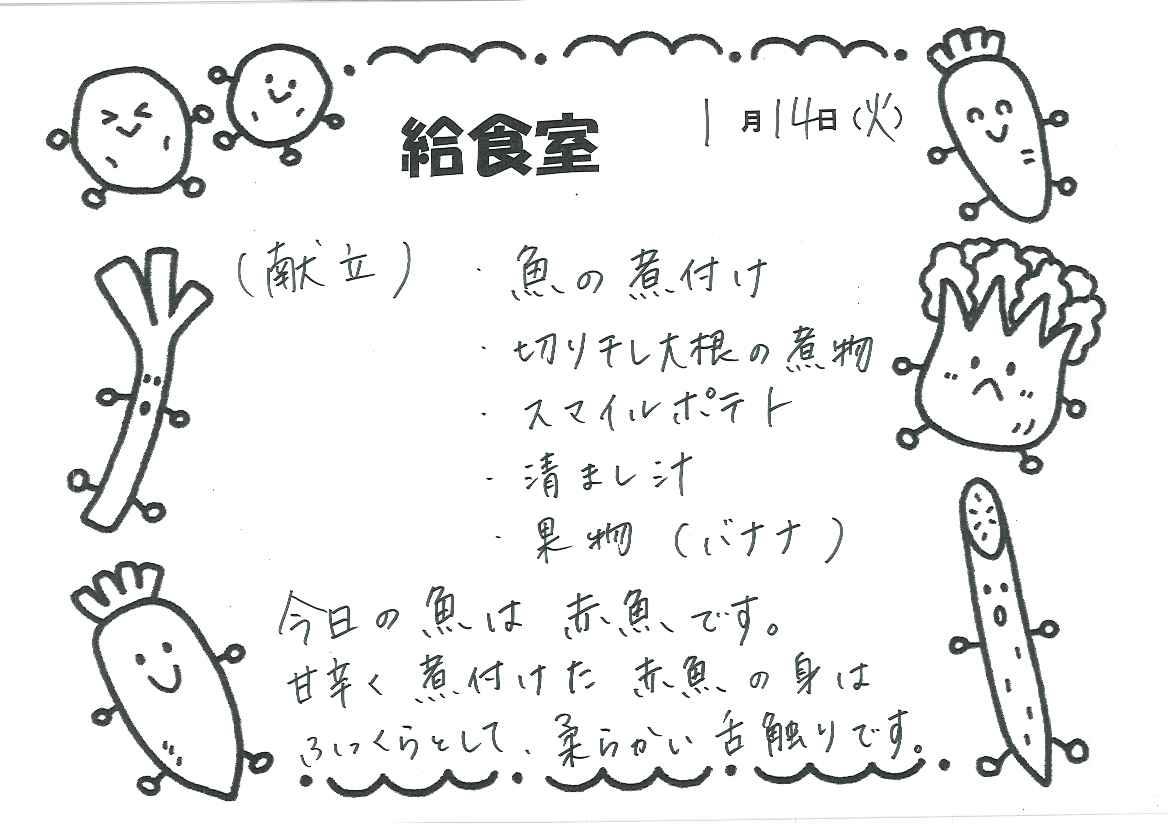 給食室
1月14日(火)
(献立)
・魚の煮付け
・切り干し大根の煮物
・スマイルポテト
・清まし汁
・果物(バナナ)
今日の魚は赤魚です。
甘辛く煮付けた赤魚の身は
ふっくらとして、柔らかい舌触りです。